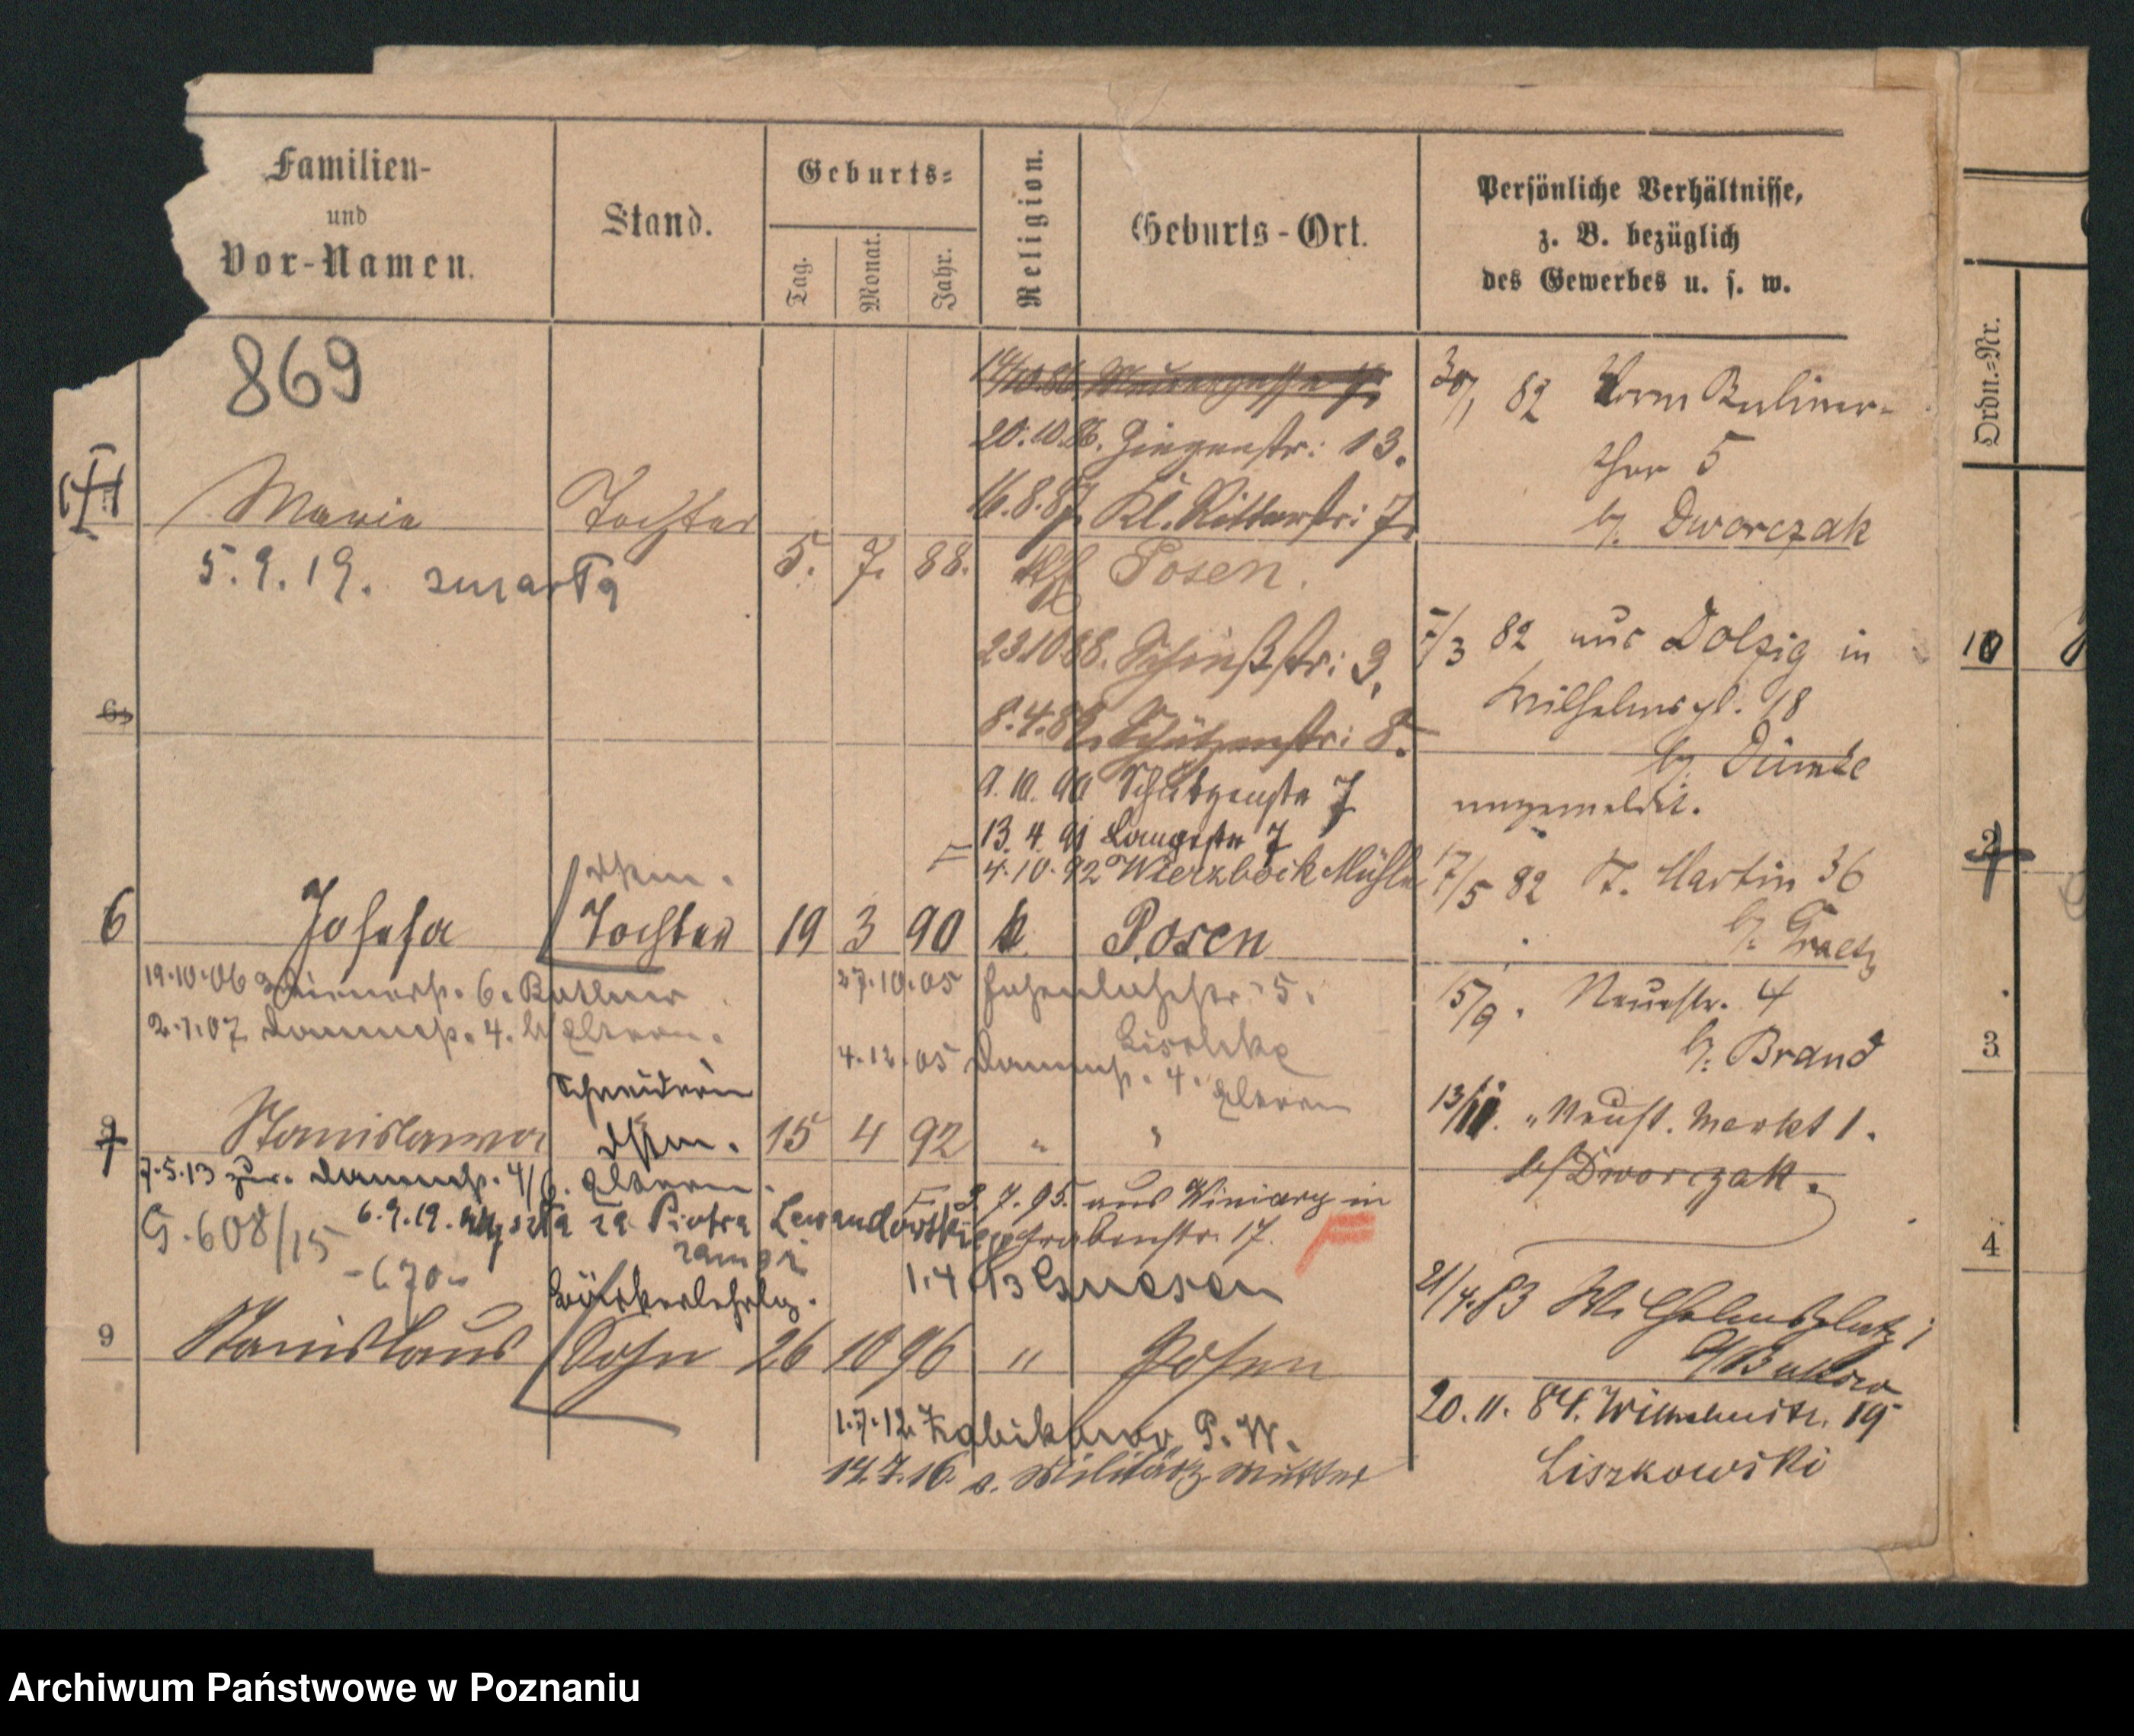 Familien-
und
Vor-Namen.
Stand.
Geburts-
Tag.
Monat.
Jahr.
Religion.
Geburts-Ort.
Persönliche Verhältnisse,
z. B. bezüglich
des Gewerbes u. s. w.
Ordn.-Nr.
869
20.10.86. Ziegenstr: 13.
16.8.87. Kl. Ritterstr: 7.
Maria Tochter 5. 7. 88. Posen.
5.9.19. zmarła
23.10.88. Schießstr: 3.
8.4.89. Schützenstr: 8.
9.10.90 Schützenstr 7
13.4.91 Langestr 7
4.10.92 Wierzbock Mühle
6 Josefa Tochter 19 3 90 k. Posen
19.10.06 6.
27.10.05 Hohenlohestr. 5.
2.1.07 Dammstr. 4. b/ Eltern.
4.12.05 Dammstr. 4. Eltern
Schneiderin
7 Stanislawa 15 4 92 " "
7.5.13 zur. Dammstr. 4/6. Eltern.
F. 3.7.95. aus Winiary in
Grabenstr. 17.
G.608/15
6.9.19. wyszła za Piotra Lewandowski
1.4.13 Gnesen
9 Stanislaus Sohn 26 10 96 " Posen
1.7.12. Żabikowo P.W.
14.7.16. z. Militär Mutter
30/1 82 Vorm Berliner-
thor 5
b/. Dworczak
7/3 82 aus Dolzig in
Wilhelmspl. 18
b/. Dümke
umgemeldet.
17/5 82 St. Martin 36
b/. Graetz
15/9. Neuestr. 4
b/. Brand
13/11. " Neust. Markt 1.
b/ Dworczak.
21/4.83 Wilhelmsplatz
20.11.84. Wilhelmstr. 19
Liszkowski
10
2
3
4